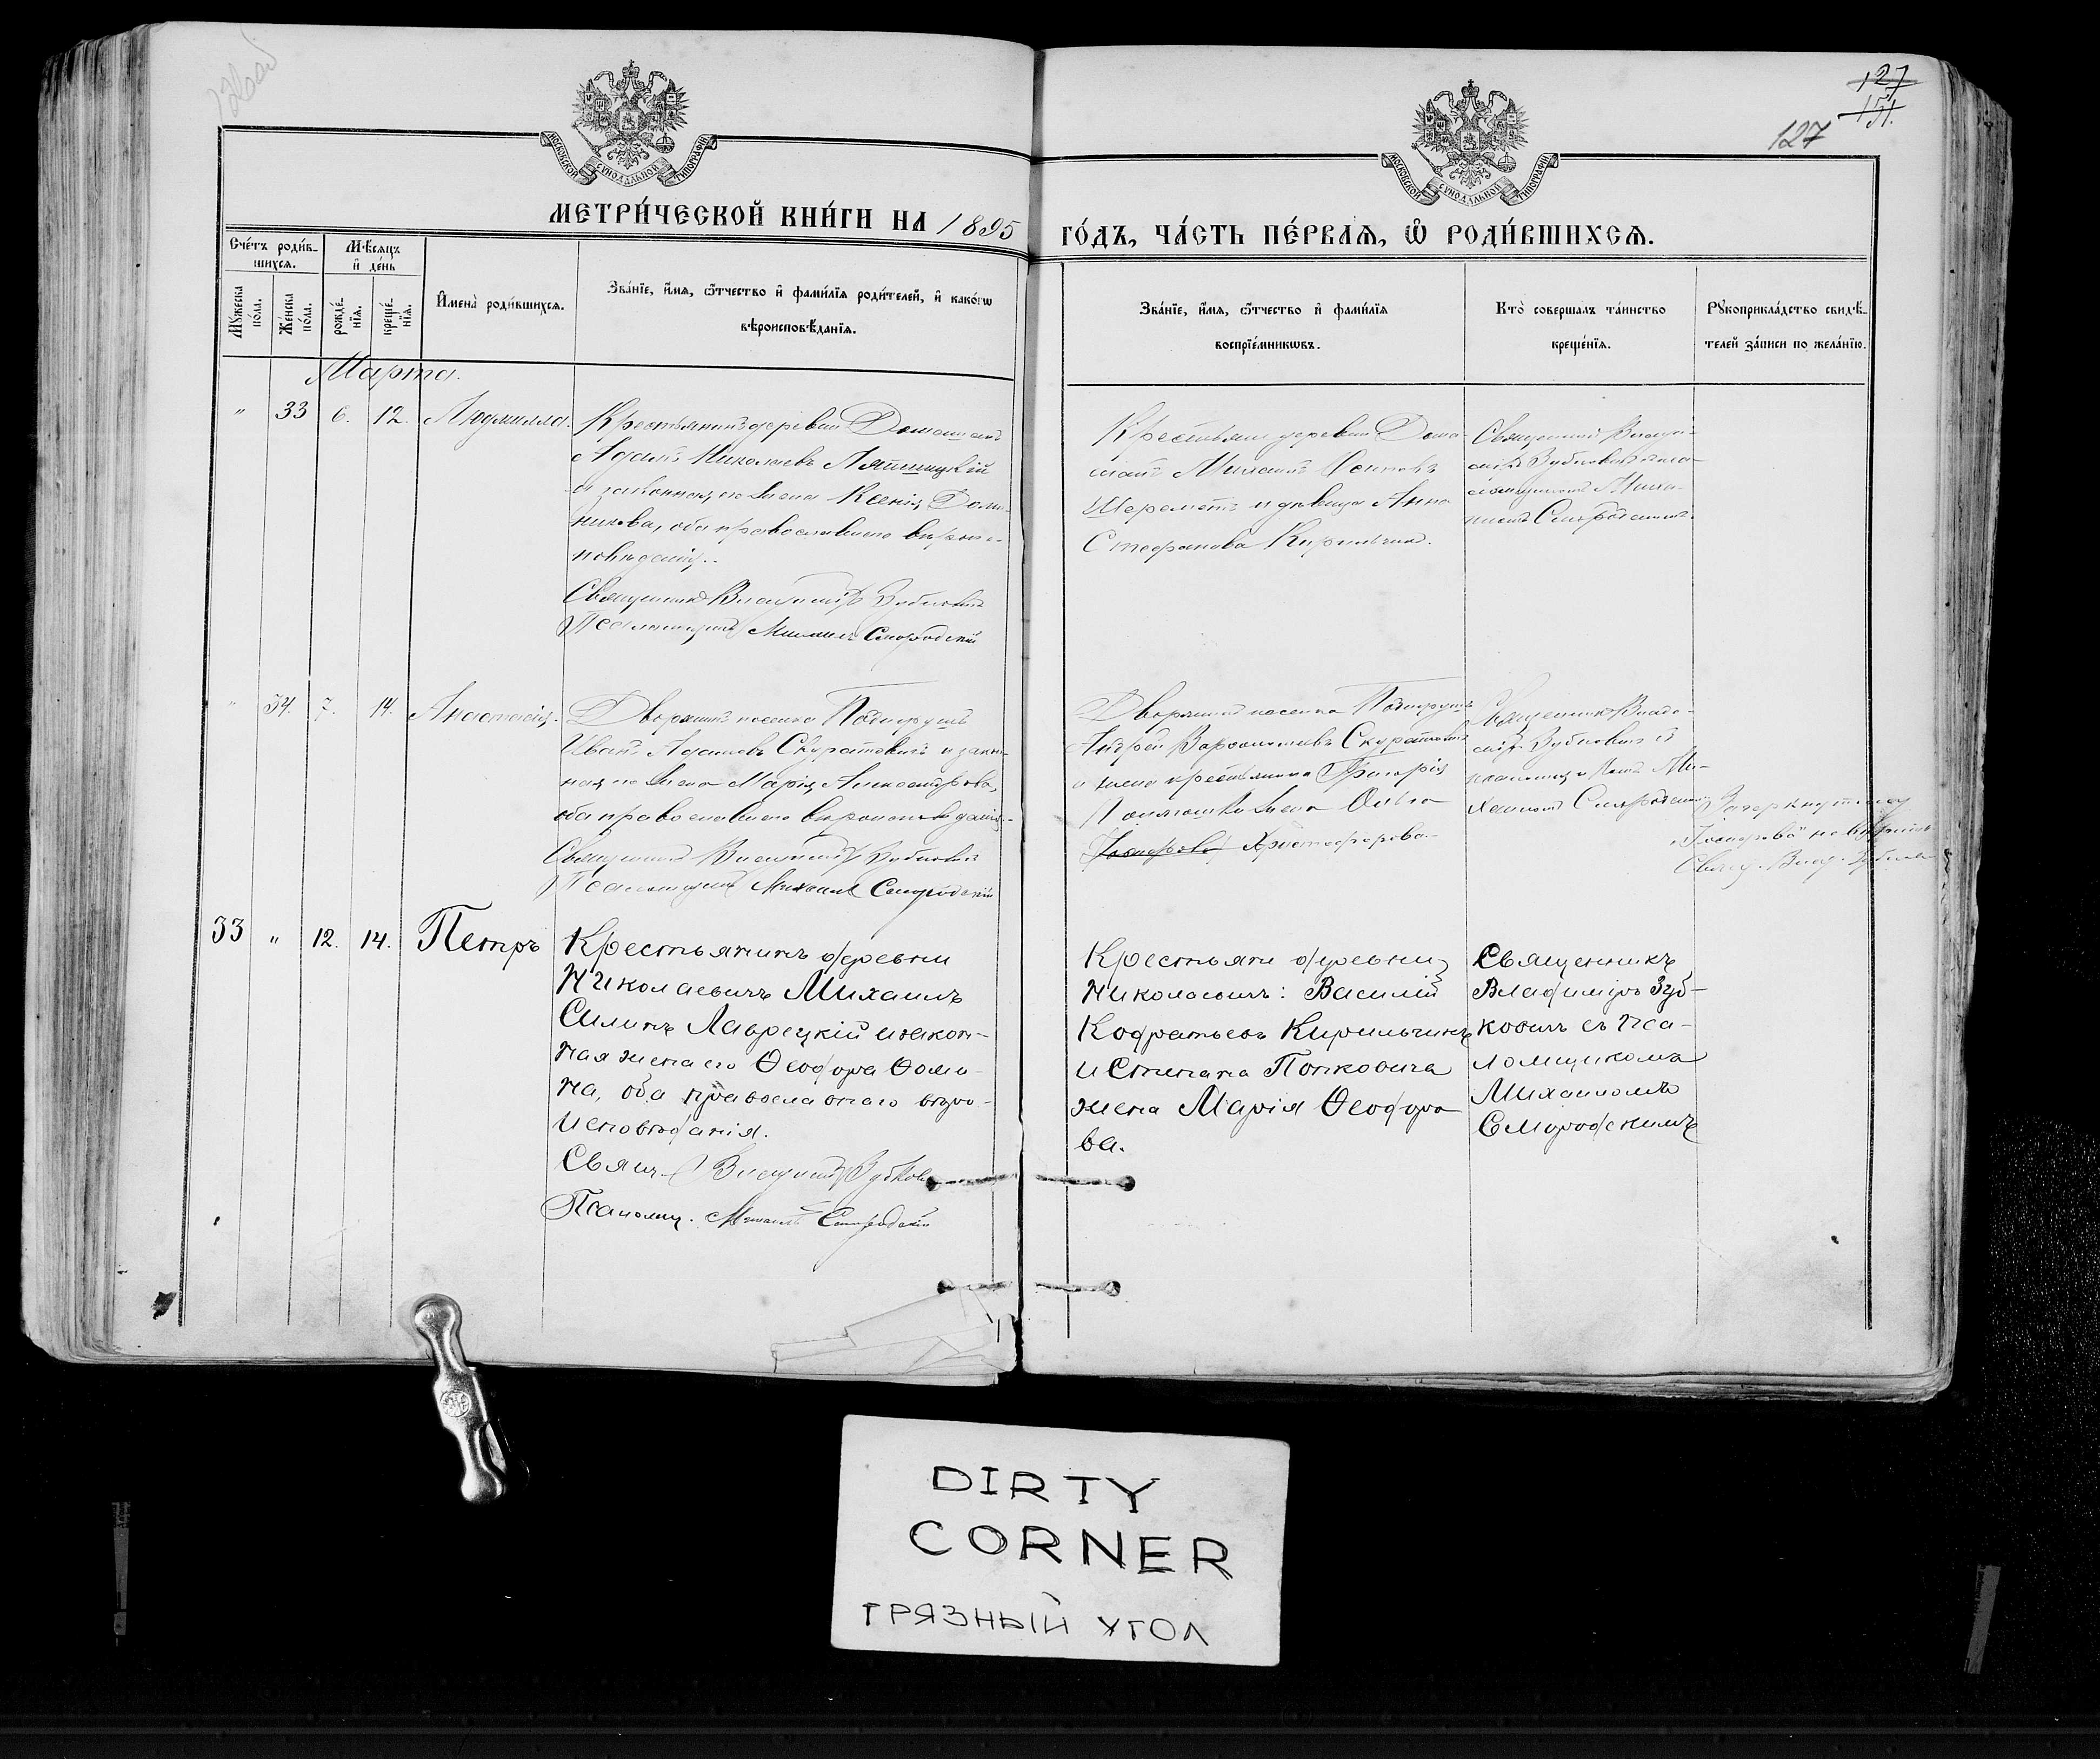 127
151.
127
МОСКОВСКОЙ СУНОДАЛЬНОЙ ТИПОГРАФІИ
МОСКОВСКОЙ СУНОДАЛЬНОЙ ТИПОГРАФІИ
МЕТРИ́ЧЕСКОЙ КНИ́ГИ НА 1895 ГО́ДЪ, ЧА́СТЬ ПЕ́РВАѦ, Ѡ РОДИ́ВШИХСѦ.
Счéтъ роди́в-
шихсѧ.
Мѣ́сѧцъ
и҆ де́нь
Мꙋ́жеска по́ла.
Же́нска по́ла.
рожде́-нїѧ.
креще́-нїѧ.
И҆мена̀ роди́вшихсѧ.
Зва́нїе, и҆́мѧ, ѻ҆́тчество и҆ фами́лїѧ роди́телей, и҆ како́гѡ
вѣроисповѣ́данїѧ.
Зва́нїе, и҆́мѧ, ѻ҆́тчество и҆ фами́лїѧ
воспрїе́мникѡвъ.
Кто̀ соверша́лъ та́инство
креще́нїѧ.
Рꙋкоприкла́дство свидѣ́-
телей за́писи по жела́нїю.
Марта.
" 33 6. 12. Людмилла.
Крестьянинъ деревни Домашань
Адамъ Николаевъ Ляпницкій
и законная его жена Ксенія Доми-
никова, оба православнаго вѣроис-
повѣданія.
Священникъ Владиміръ Зубковичъ
Псаломщикъ Михаилъ Смородскій
Крестьяне деревни Дома-
шань Михаилъ Осиповъ
Шереметъ и дѣвица Анна
Стефанова Кирильчикъ.
Священникъ Влади-
міръ Зубковичъ съ пса-
ломщикомъ Миха-
иломъ Смородскимъ.
" 34. 7. 14. Анастасія.
Дворянинъ поселка
Иванъ Адамовъ Скуратовичъ и закон-
ная его жена Марія Александрова,
оба православнаго вѣроисповѣданія.
Священникъ Владиміръ Зубковичъ
Псаломщикъ Михаилъ Смородскій
Дворянинъ поселка
Андрей Варѳоломеевъ Скуратовичъ
и крестьянина Григорія
жена
Христофорова
Священникъ Влади-
міръ Зубковичъ съ
псаломщикомъ Ми-
хаиломъ Смородскимъ
Зачеркнутому
не вѣрить
Свящ. Влад. Зубкович
33 " 12. 14. Петръ
Крестьянинъ деревни
Николаевичъ Михаилъ
Силинъ Лаврецкій и закон-
ная жена его Ѳеодора Ѳоми-
на, оба православнаго вѣро-
исповѣданія.
Свящ. Владиміръ Зубкович
Псаломщ. Михаилъ Смородскій
Крестьяне деревни
Николаевичъ: Василій
Кодратьевъ Кирильчикъ
и Степана Попковича
жена Марія Ѳеодоро
ва.
Священникъ
Владиміръ Зуб-
ковичъ съ Пса-
ломщикомъ
Михаиломъ
Смородскимъ
DIRTY
CORNER
ГРЯЗНЫЙ УГОЛ